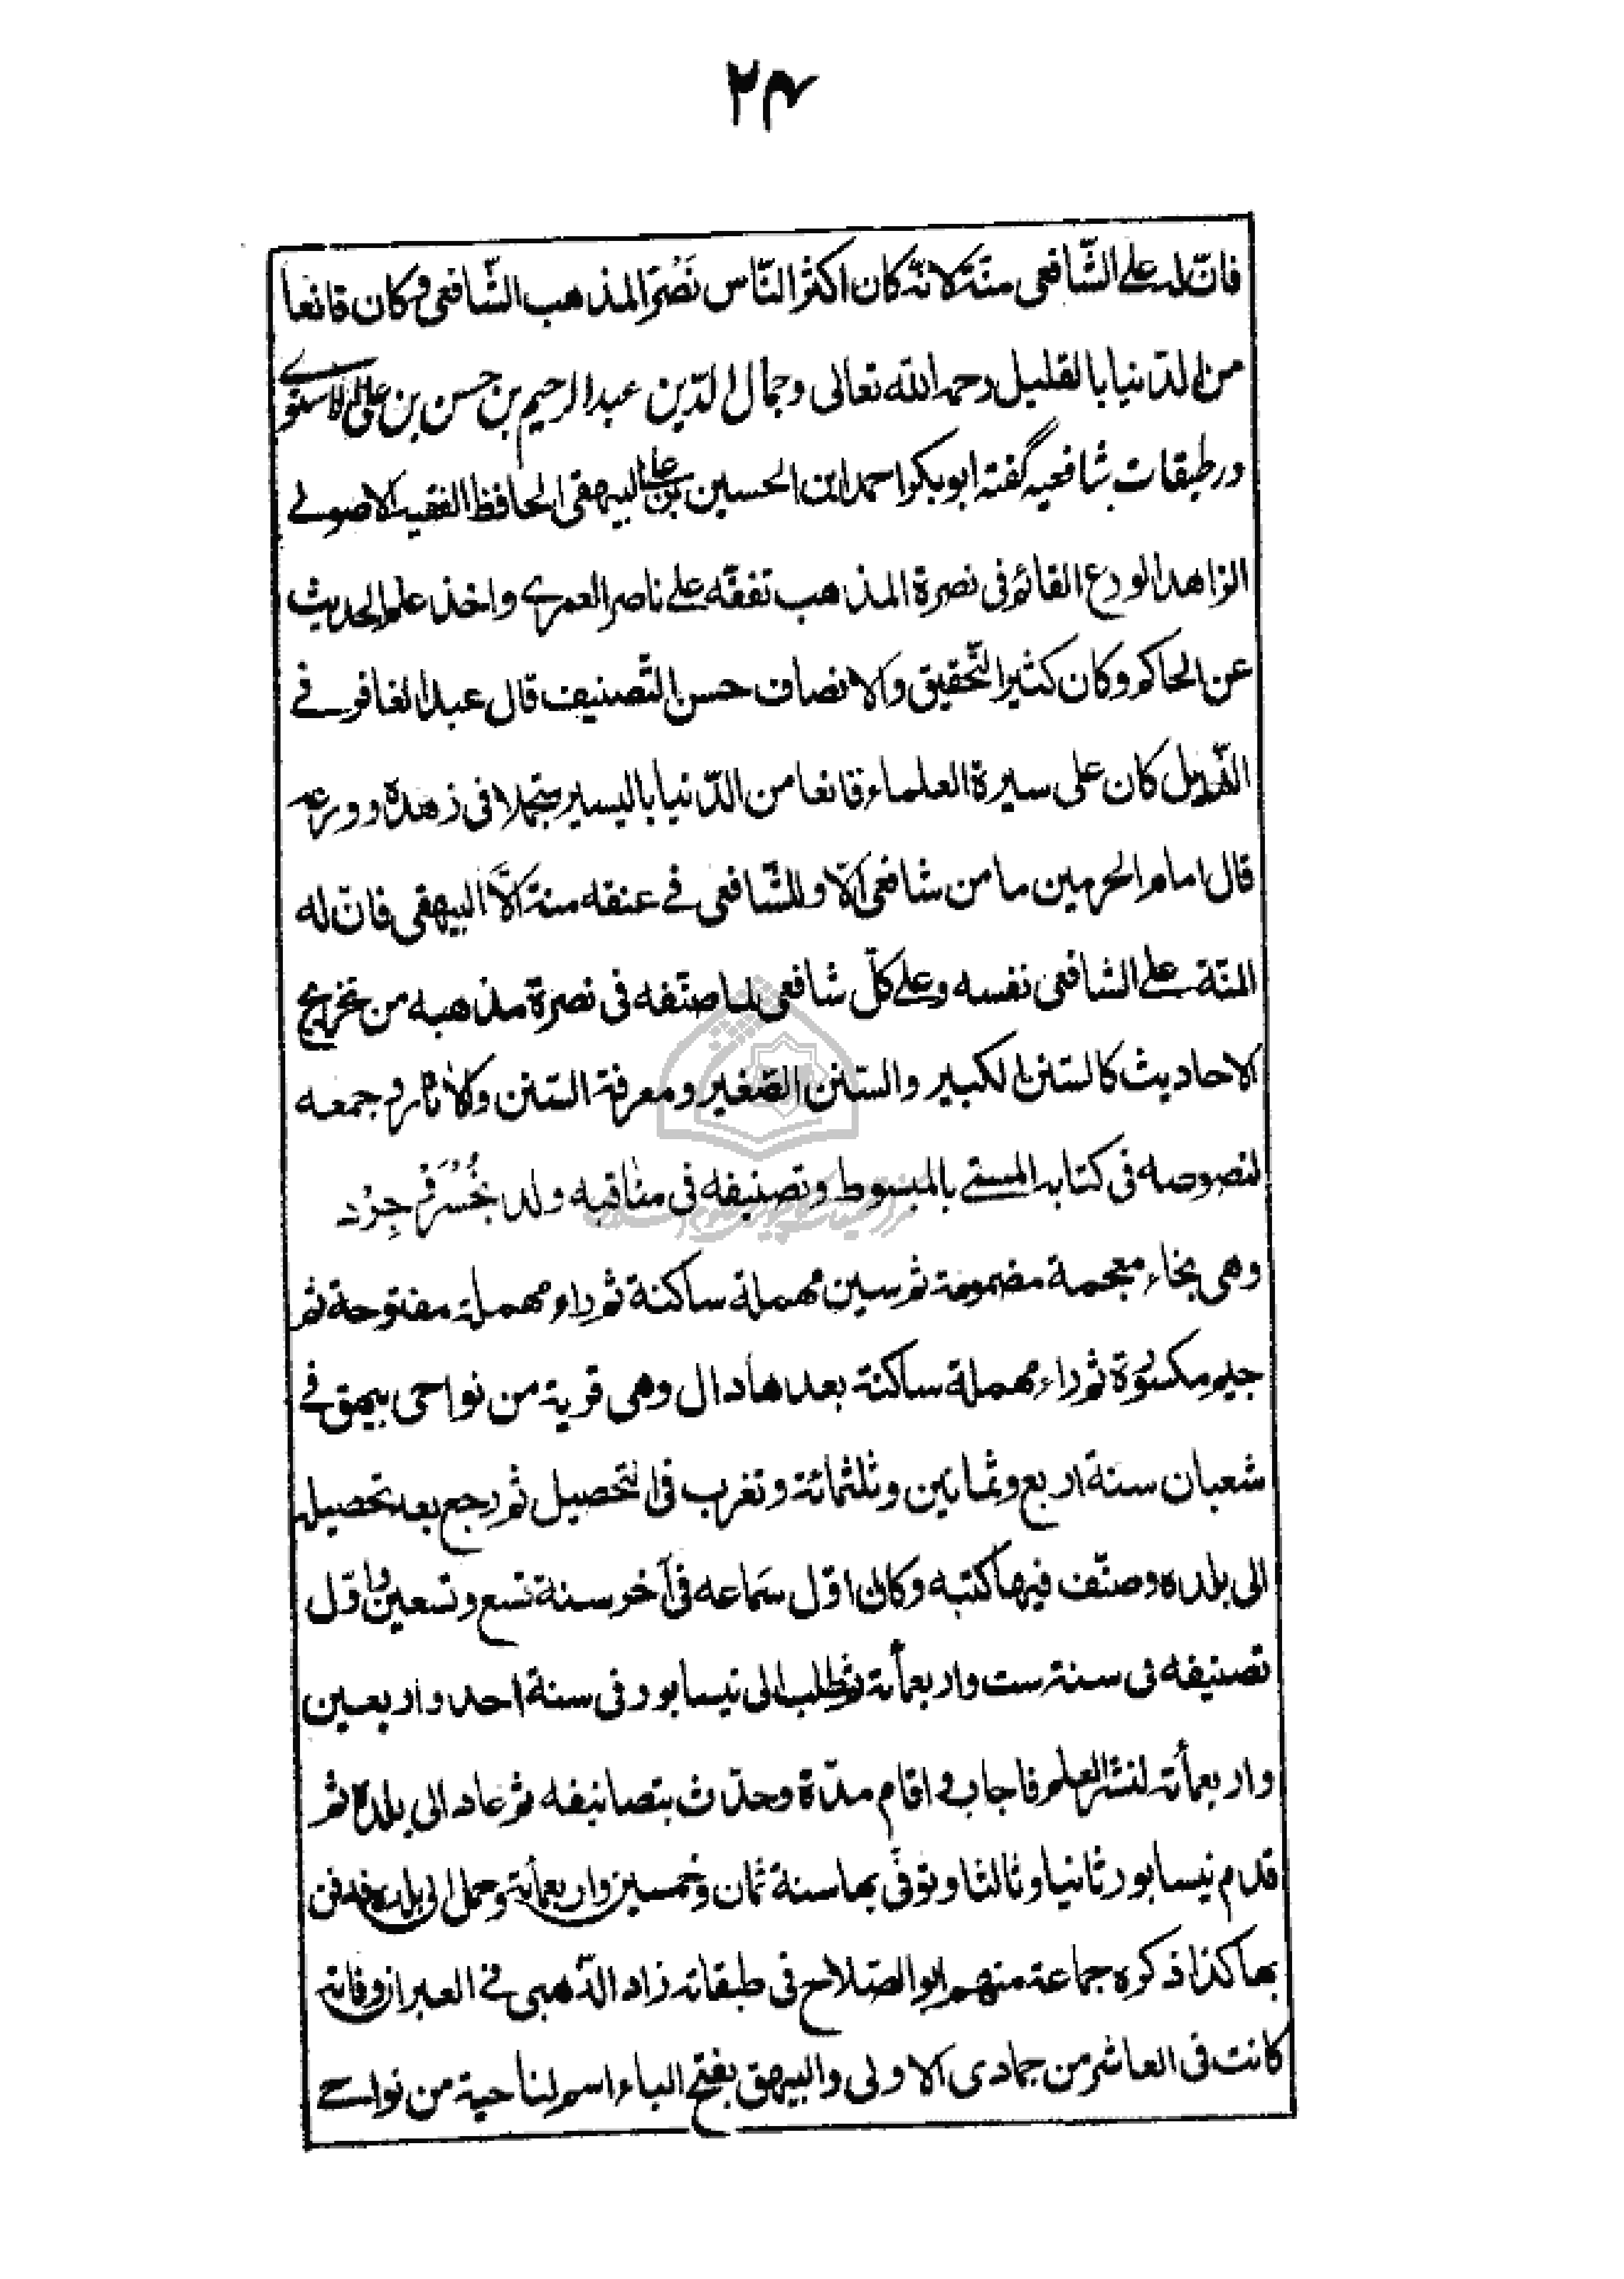 ۲۴
فانّ له على الشّافعى منّة لانّه كان اكثر النّاس نَصْرًا لمذهب الشّافعى وكان قانعا
من الدّنيا بالقليل رحمه الله تعالى وجمال الدّين عبد الرحيم بن حسن بن على الاسنوى
در طبقات شافعيه گفته ابو بكر احمد ابن الحسين بن على البيهقى الحافظ الفقيه الاصولى
الزاهد الورع القائم فى نصرة المذهب تفقّه على ناصر العمرى واخذ علم الحديث
عن الحاكم وكان كثير التّحقيق والانصاف حسن التّصنيف قال عبد الغافر فى
الذّيل كان على سيرة العلماء قانعا من الدّنيا باليسير متجملا فى زهده وورعه
قال امام الحرمين ما من شافعى الّا وللشّافعى فى عنقه منة الّا البيهقى فانّ له
المنّة على الشافعى نفسه وعلى كلّ شافعى لما صنّفه فى نصرة مذهبه من تخريج
الاحاديث كالسنن الكبير والسّنن الصّغير ومعرفة السّنن والاثار وجمعه
لنصوصه فى كتابه المسمّى بالمبسوط وتصنيفه فى مناقبه ولد بخُسْرَوْجِرْد
وهى بخاء معجمة مضمومة ثم سين مهملة ساكنة ثم راء مهملة مفتوحة ثم
جيم مكسورة ثم راء مهملة ساكنة بعدها دال وهى قرية من نواحى بيهق فى
شعبان سنة اربع وثمانين وثلثمائة وتغرب فى التحصيل ثم رجع بعد تحصيله
الى بلده وصنّف فيها كتبه وكان اوّل سَماعه فى آخر سنة تسع وتسعين واوّل
تصنيفه فى سنة ست واربعمأته ثم طلب الى نيسابور فى سنة احد واربعين
واربعمأته لنشر العلم فاجاب واقام مدّة وحدّث بتصانيفه ثم عاد الى بلده ثم
قدم نيسابور ثانيا وثالثا وتوفّى بها سنة ثمان وخمسين واربعمأته وحمل الى بلده فدفن
بها كذا ذكره جماعة منهم ابو الصّلاح فى طبقاته زاد الذّهبى فى العبر ان وفاته
كانت فى العاشر من جمادى الاولى والبيهق بفتح الباء اسم لناحية من نواحى